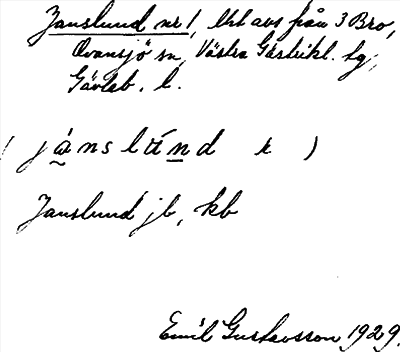 Janslund nr 1, lht avs från 3 Bro,
Ovansjö sn, Västra Gästrikl. tg,
Gävleb. l.
( jánslúnd r )
Janslund jb, kb
Emil Gustavsson 1929.